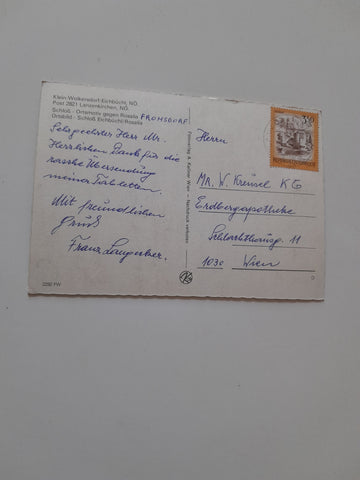 Klein Wolkersdorf-Eichbüchl, NÖ.
Post 2821 Lanzenkirchen, NÖ.
Schloß - Ortsmotiv gegen Rosalia FROHSDORF
Ortsbild - Schloß Eichbüchl/Rosalia
Sehrgeehrter Herr Mr.
Herzlichen Dank für die
rasche Übersendung
meiner Tabletten.
Mit freundlichen
Gruß
Franz
2292 FW
Fotoverlag A. Kellner Wien - Nachdruck verboten
350
REPUBLIK ÖSTERREICH
Herrn
MR. W. Kreusel KG
Erdbergapotheke
11
1030 Wien